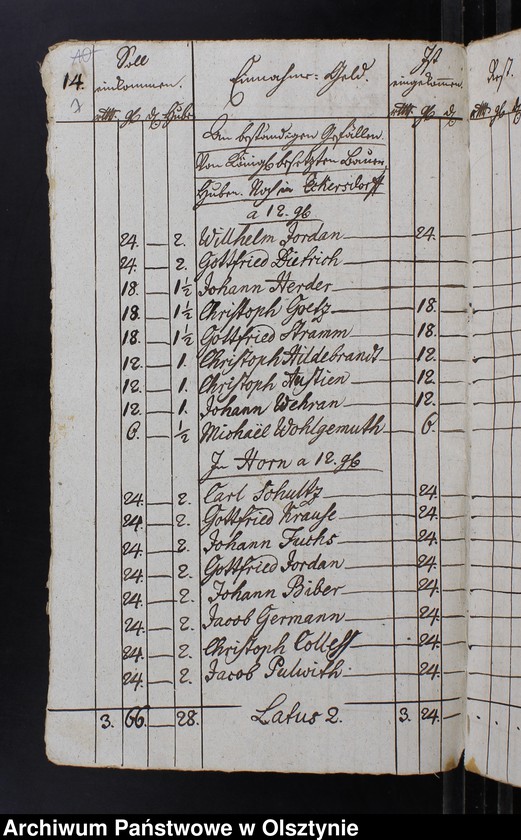 14.
Soll
einkommen.
Einnahme: Geld.
Ist
eingekommen
Rest.
rthl. gl d Hube
rthl. gl d
rthl. gl d
An beständigen Gefällen
Von Königl. besetzten Bauer
Huben. Noch in Eckersdorff
a 12. gl
24. — 2. Willhelm Jordan — 24. —
24. — 2. Gottfried Dietrich —
18. — 1½ Johann Herder —
18. — 1½ Christoph Goetz — 18. —
18. — 1½ Gottfried Stramm — 18. —
12. — 1. Christoph Hildebrandt — 12. —
12. — 1. Christoph Austien — 12. —
12. — 1. Johann Wehran — 12. —
6. — ½ Michaël Wohlgemuth — 6. —
In Horn a 12. gl
24. — 2. Carl Schultz — 24. —
24. — 2. Gottfried Krause — 24. —
24. — 2. Johann Fuchs — 24. —
24. — 2. Gottfried Jordan — 24. —
24. — 2. Johann Biber — 24. —
24. — 2. Jacob Germann — 24. —
24. — 2. Christoph — 24. —
24. — 2. Jacob Pulwith — 24. —
3. 66. — 28. Latus 2. 3. 24. —
Archiwum Państwowe w Olsztynie